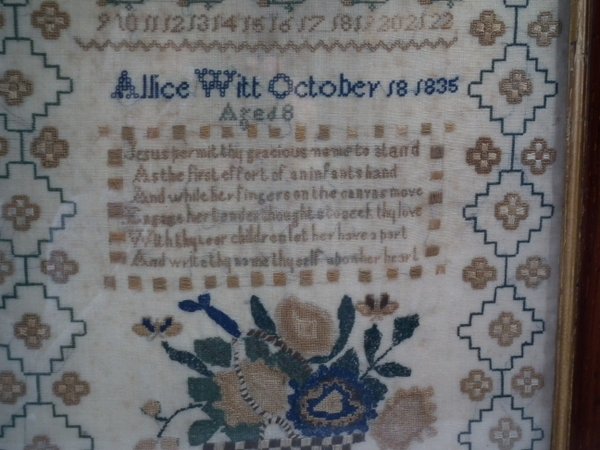 9 10 11 12 13 14 15 16 17 18 19 20 21 22
Allice Witt October 18 1836
Aged 8
Jesus permit thy gracious name to stand
As the first effort of an infants hand
And while her fingers on the canvas move
Engage her tender thoughts to seek thy love
With thy dear children let her have a part
And write thy name thy self upon her heart